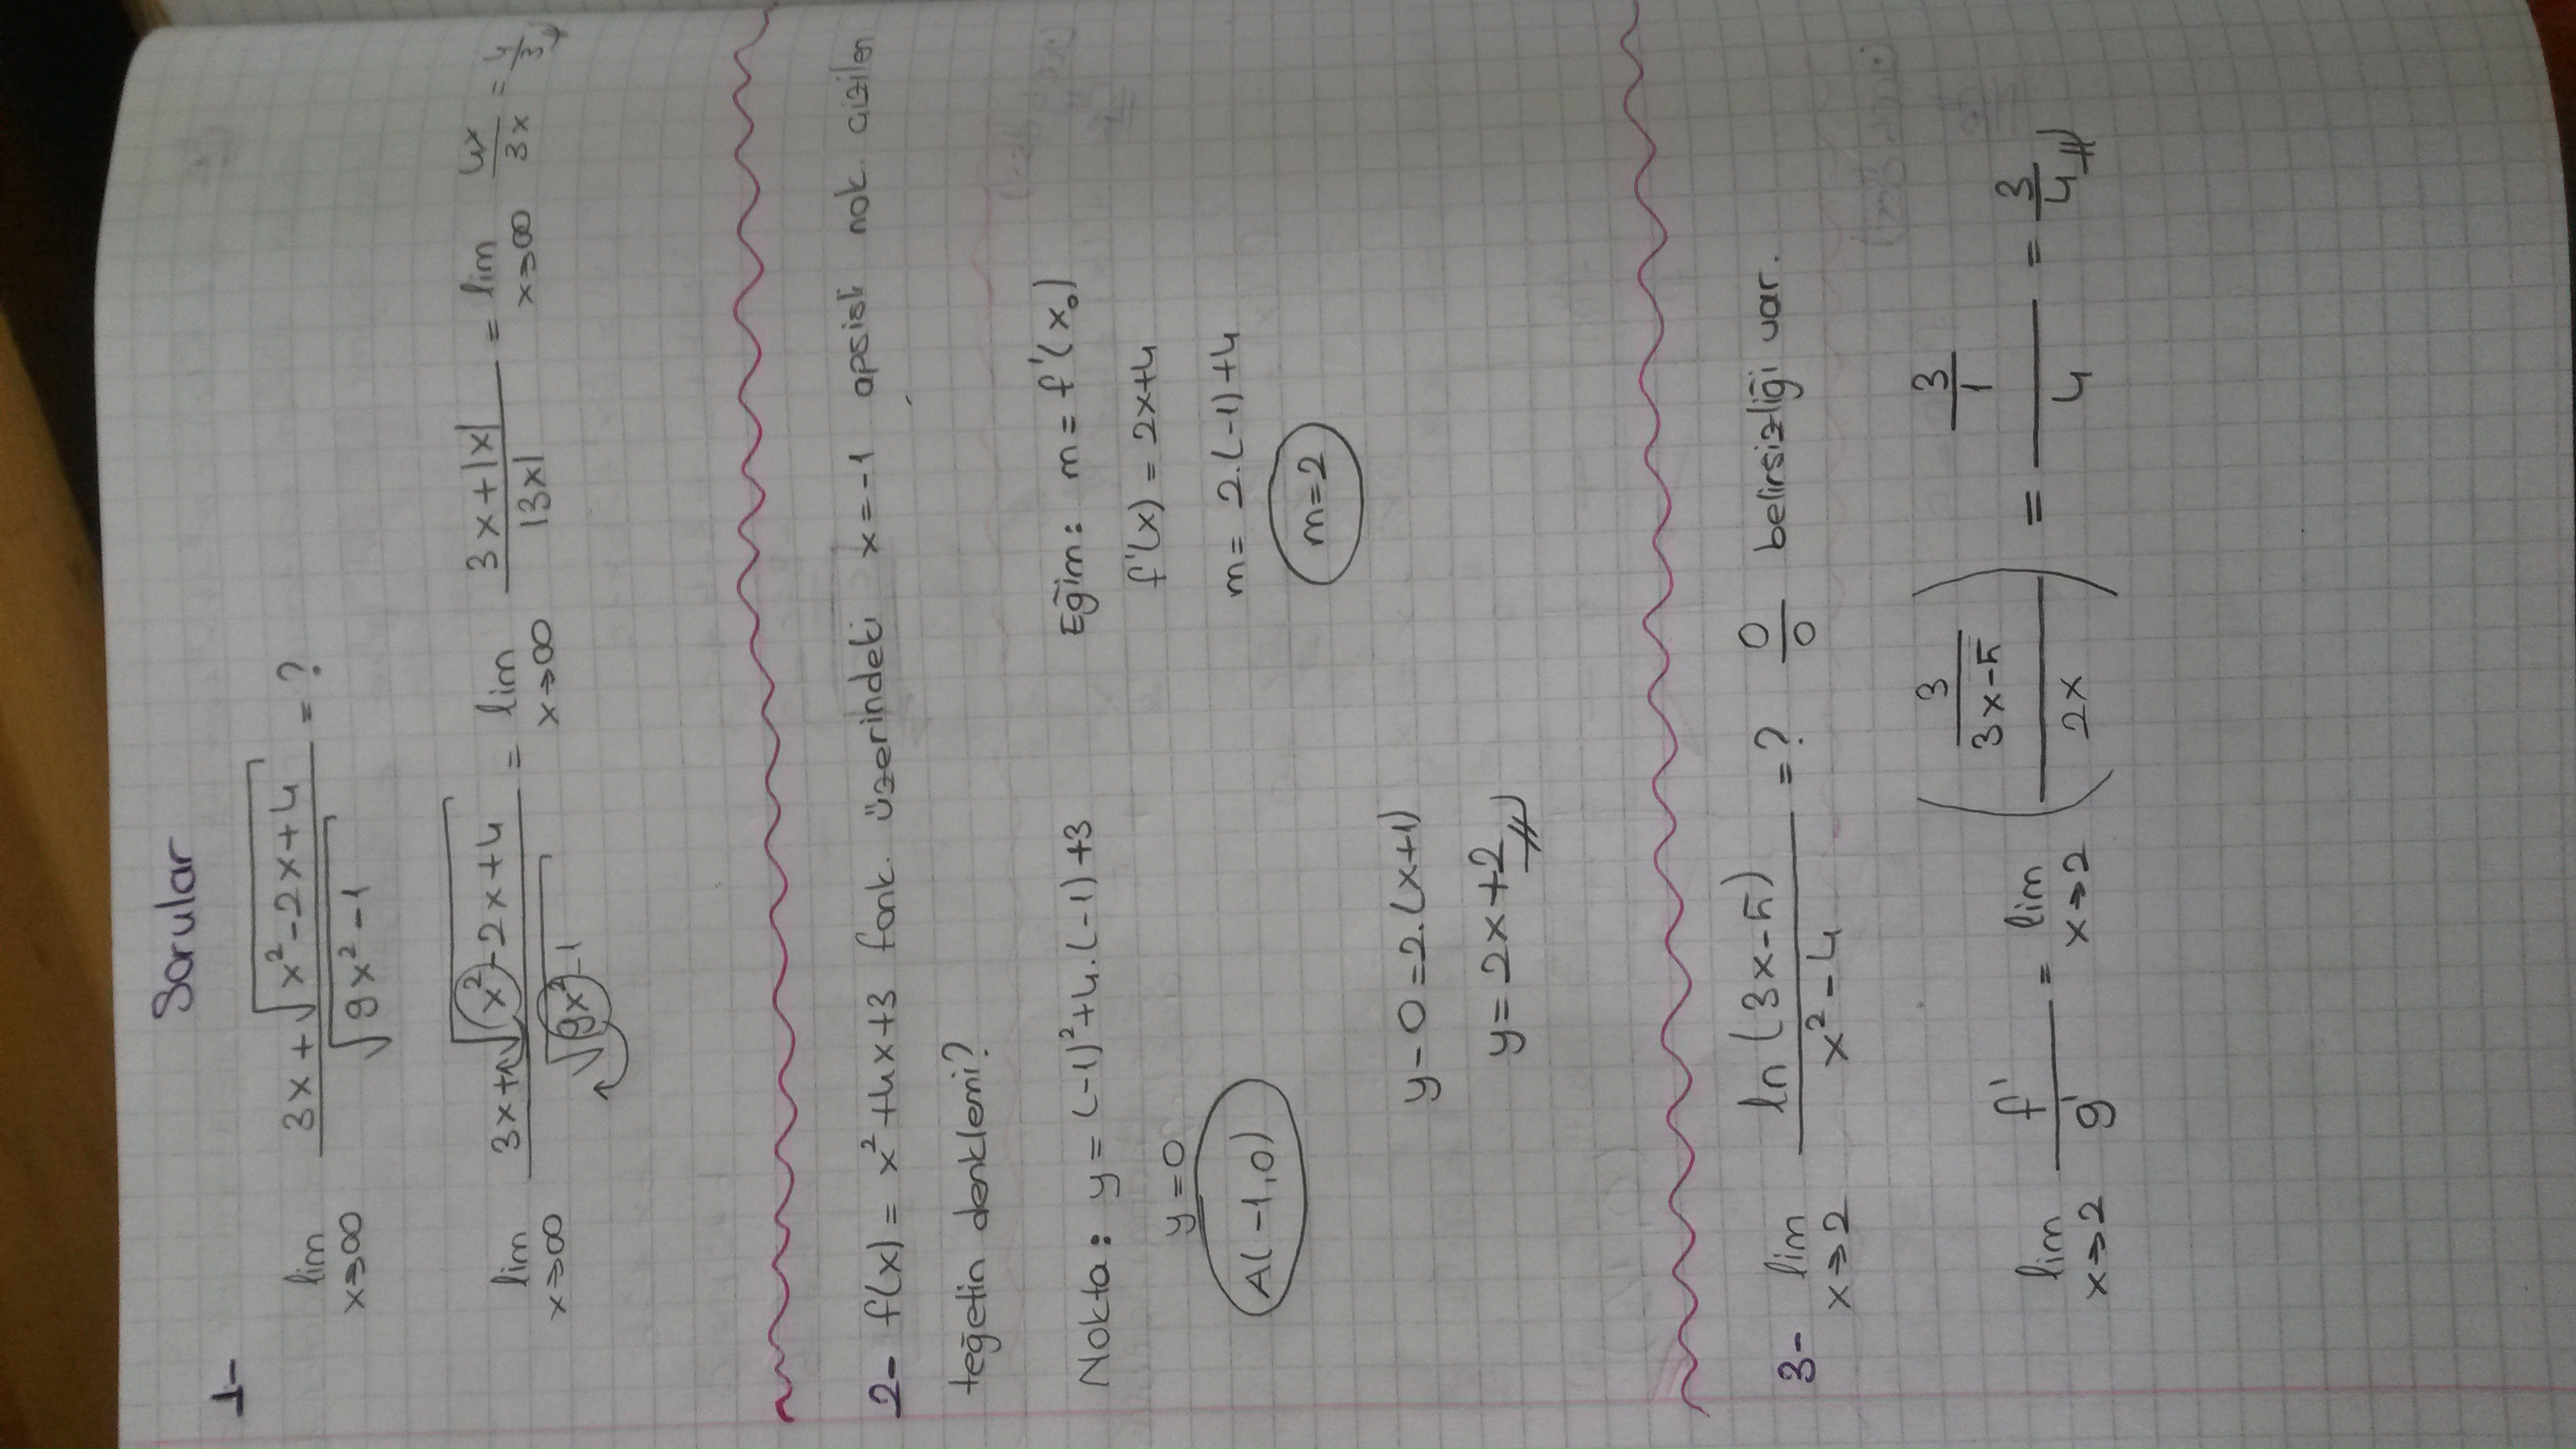 Sorular
1-
lim x→∞ (3x+√(x²-2x+4))/√(9x²-1) = ?
lim x→∞ (3x+√(x²-2x+4))/√(9x²-1) = lim x→∞ (3x+|x|)/|3x| = lim x→∞ 4x/3x = 4/3
2- f(x) = x²+4x+3 fonk. üzerindeki x=-1 apsisli nok. çizilen
teğetin denklemi?
Nokta: y = (-1)²+4.(-1)+3 Eğim: m = f'(x₀)
y=0 f'(x) = 2x+4
A(-1,0) m= 2.(-1)+4
m=2
y-0=2.(x+1)
y= 2x+2
3- lim x→2 ln(3x-5)/(x²-4) = ? 0/0 belirsizliği var.
lim x→2 f'/g' = lim x→2 ((3/(3x-5))/2x) = (3/1)/4 = 3/4